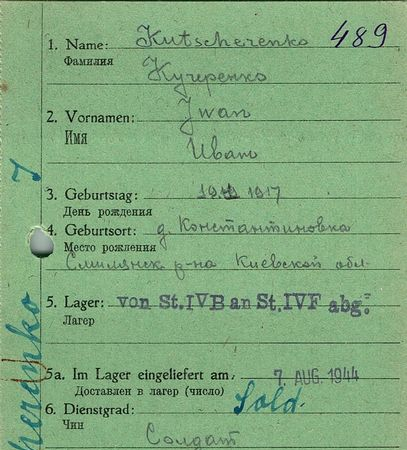 1. Name: Kutscherenko 489
Фамилия
Кучеренко
2. Vornamen: Jwan
Имя
Иван
3. Geburtstag: 1917
День рождения
4. Geburtsort: д. Константиновка
Место рождения
Смилянск. р-на Киевской обл.
5. Lager: von St.IVB an St.IVF abg.
Лагер
5a. Im Lager eingeliefert am 7. AUG. 1944
Доставлен в лагер (число)
6. Dienstgrad: Sold.
Чин
Солдат